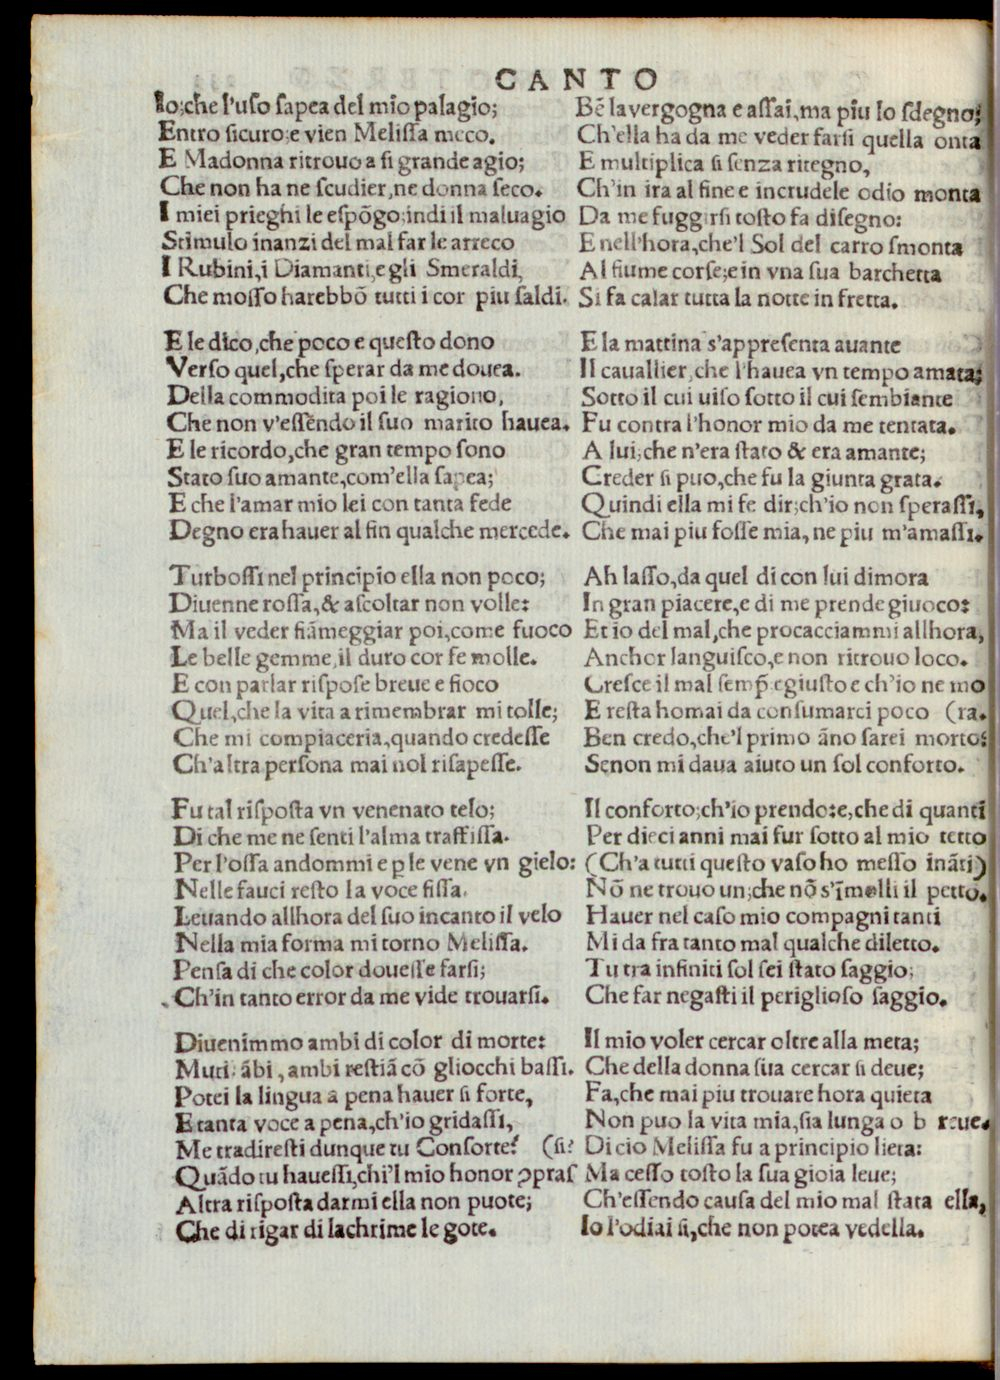 CANTO
Io;che l'uſo ſapea del mio palagio;
Entro ſicuro;e vien Meliſſa meco.
E Madonna ritrouo a ſi grande agio;
Che non ha ne ſcudier,ne donna ſeco.
I miei prieghi le eſpõgo;indi il maluagio
Stimulo inanzi del mal far le arreco
I Rubini,i Diamanti,e gli Smeraldi,
Che moſſo harebbõ tutti i cor piu ſaldi.

E le dico,che poco e queſto dono
Verſo quel,che ſperar da me douea.
Della commodita poi le ragiono,
Che non v'eſſẽndo il ſuo marito hauea.
E le ricordo,che gran tempo ſono
Stato ſuo amante,com'ella ſapea;
E che l'amar mio lei con tanta fede
Degno era hauer al fin qualche mercede.

Turboſſi nel principio ella non poco;
Diuenne roſſa,& aſcoltar non volle:
Ma il veder fiãmeggiar poi,come fuoco
Le belle gemme,il duro cor fe molle.
E con parlar riſpoſe breue e fioco
Quel,che la vita a rimembrar mi tolle;
Che mi compiaceria,quando credeſſe
Ch'altra perſona mai nol riſapeſſe.

Fu tal riſpoſta vn venenato telo;
Di che me ne ſenti l'alma traffiſſa.
Per l'oſſa andommi e p le vene vn gielo:
Nelle fauci reſto la voce fiſſa.
Leuando allhora del ſuo incanto il velo
Nella mia forma mi torno Meliſſa.
Penſa di che color doueſſe farſi;
Ch'in tanto error da me vide trouarſi.

Diuenimmo ambi di color di morte:
Muti ãbi, ambi reſtiã cõ gliocchi baſſi.
Potei la lingua a pena hauer ſi forte,
E tanta voce a pena,ch'io gridaſſi,
Me tradireſti dunque tu Conſorte? (ſi?
Quãdo tu haueſſi,chi'l mio honor ꝯpraſ
Altra riſpoſta darmi ella non puote;
Che di rigar di lachrime le gote.

Bẽ la vergogna e aſſai,ma piu lo ſdegno;
Ch'ella ha da me veder farſi quella onta
E multiplica ſi ſenza ritegno,
Ch'in ira al fine e incrudele odio monta
Da me fuggirſi toſto fa diſegno:
E nell'hora,che'l Sol del carro ſmonta
Al fiume corſe;e in vna ſua barchetta
Si fa calar tutta la notte in fretta.

E la mattina s'appreſenta auante
Il cauallier,che l'hauea vn tempo amata;
Sotto il cui uiſo ſotto il cui ſembiante
Fu contra l'honor mio da me tentata.
A lui;che n'era ſtato & era amante;
Creder ſi puo,che fu la giunta grata.
Quindi ella mi fe dir;ch'io non ſperaſſi,
Che mai piu foſſe mia, ne piu m'amaſſi.

Ah laſſo,da quel di con lui dimora
In gran piacere,e di me prende giuoco:
Et io del mal,che procacciammi allhora,
Anchor languiſco,e non ritrouo loco.
Creſce il mal ſemp̃ e giuſto e ch'io ne mo
E reſta homai da conſumarci poco (ra.
Ben credo,che'l primo ãno ſarei morto:
Se non mi daua aiuto un ſol conforto.

Il conforto;ch'io prendo:e,che di quanti
Per dieci anni mai fur ſotto al mio tetto
(Ch'a tutti queſto vaſo ho meſſo inãti)
Nõ ne trouo un;che nõ s'ĩmolli il petto.
Hauer nel caſo mio compagni tanti
Mi da fra tanto mal qualche diletto.
Tu tra infiniti ſol ſei ſtato ſaggio;
Che far negaſti il periglioſo ſaggio.

Il mio voler cercar oltre alla meta;
Che della donna ſua cercar ſi deue;
Fa,che mai piu trouare hora quieta
Non puo la vita mia,ſia lunga o b reue.
Di cio Meliſſa fu a principio lieta:
Ma ceſſo toſto la ſua gioia leue;
Ch'eſſendo cauſa del mio mal ſtata ella,
Io l'odiai ſi,che non potea vedella.